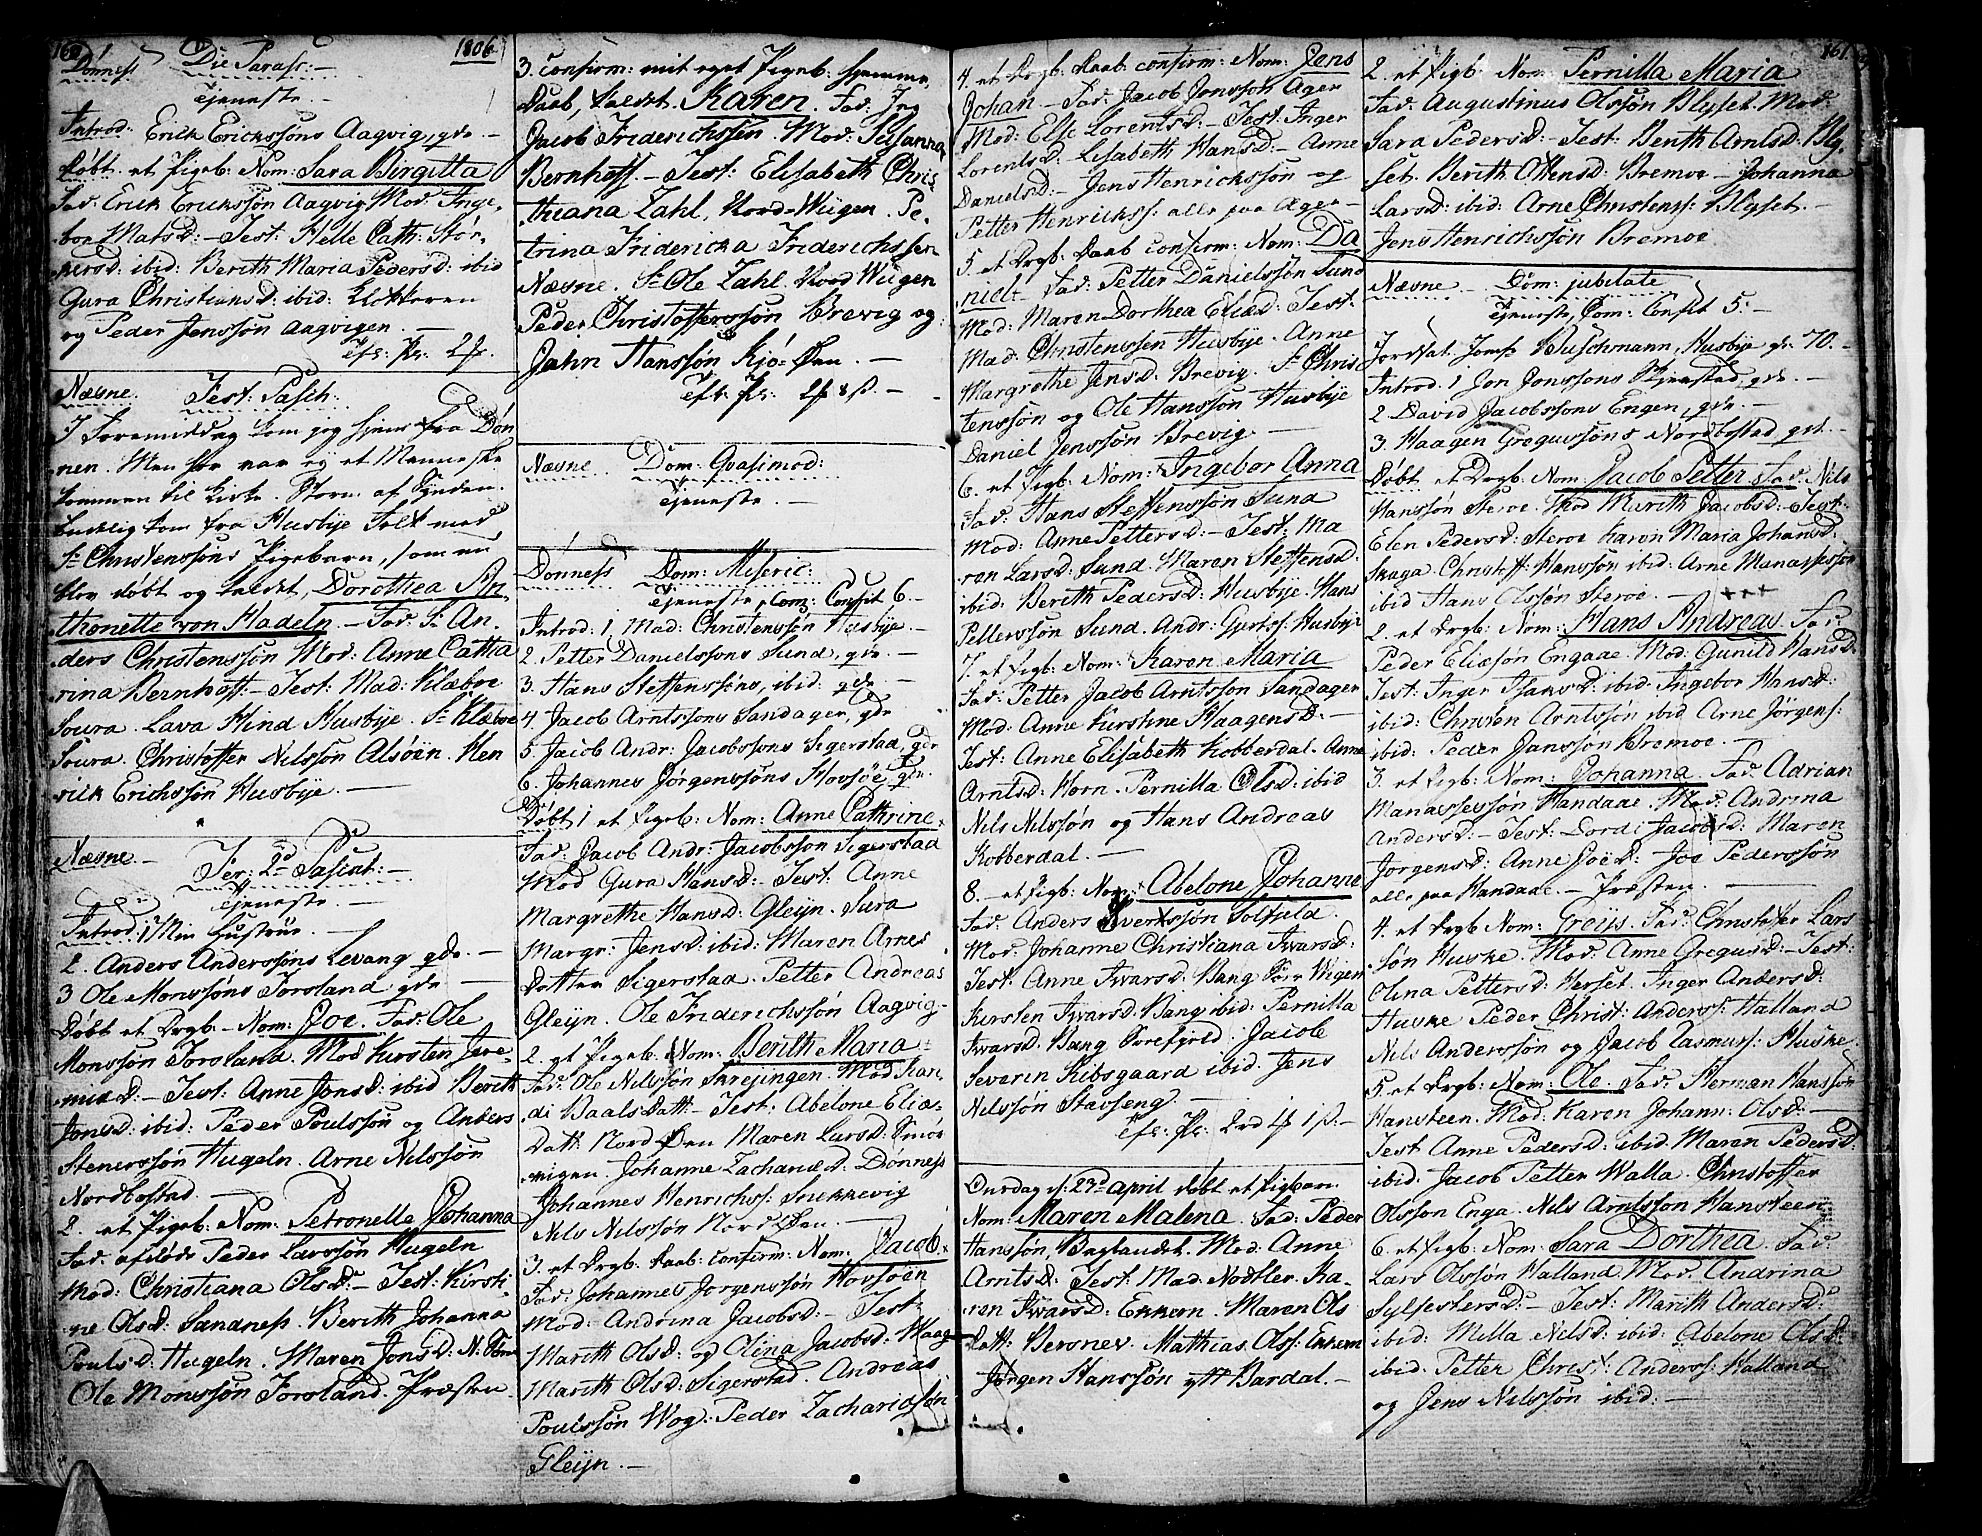 160
1806
Dønness Die Parasc:
Tjeneste.
Introd: Erick Erickssøns Aagvig, gde.
Døbt et Pigeb: Nom: Sara Birgitta
Fad: Erick Erickssøn Aagvig Mod: Inge,
bor Matsd: Test: Helle Cath: Stør,
kersd: ibid: Berith Maria Pedersd: ibid
Gura Christiansd: ibid: Klokkeren
og Peder Jenssøn Aagvigen.
Næsne Fest: Pasch:
I Formiddag kom jeg hjem fra Døn
nen. Men her var ej et Menneske
kommen til Kirke. Storm af Synden.
Endelig kom fra Husbye Folk med
Sr Christenssøns Pigebarn, som nu
blev døbt og kaldet, Dorothea An,
thonette von Hadeln. Fad: Sr An,
ders Christenssøn Mod: Anne Catha
rina Bernhoft. Test: Mad: Klæboe
Soura. Lava Hind Husbye. Sr Klæboe
Soura. Christoffer Nilssøn Alsøen. Hen
rick Erichssøn Husbye.
Næsne. Fer: 2d Pascat:
Tjeneste.
Introd: 1 Min Hustrue.
2. Anders Anderssøns Levang gde.
3 Ole Monssøns Forsland gde
Døbt et Drgb. Nom: Joe. Fad: Ole
Monssøn Forsland. Mod Kirsten Jere,
miæd: Test: Anne Jonsd: ibid Berith
Jonsd: ibid: Peder Poulssøn og Anders
Stenerssøn Hugeln. Arne Nilssøn
Nordbostad.
2. et Pigeb: Nom: Petronelle Johanna
Fad. afdøde Peder Larssøn Hugeln
Mod: Christiana Olsd: Test: Kirsti,
ne Olsd: Sandness. Berith Johanna
Poulsd: Hugeln. Maren Jonsd: N:
Ole Monssøn Forsland. Præsten.
3. confirm: mit eget Pigeb: Hjemme,
Daab, kaldet Karen. Fad. Jeg
Jacob Friderichssøn. Mod: Susanna
Bernhoft. Test: Elisabeth Chris
thiana Zahl, Nord-Wiigen. Pe,
trina Fridericka Friderichssen
Næsne. Sr Ole Zahl. Nord Wiigen
Peder Christofferssøn Brevig og
Jahn Hanssøn Kjø: Øen.
Næsne Dom: Qvasimod:
Tjeneste.
Dønness Dom: Miseric:
Tjeneste, Com: Consit 6.
Introd: 1. Mad: Christenssøn Husbye.
2. Petter Danielssøns Sund, gde.
3. Hans Steffenssøns, ibid: gde
4 Jacob Arntssøns Sandager, gde
5 Jacob Andr: Jacobssøns Sigerstad, gde
6. Johannes Jørgenssøns Hovsøe, gde.
Døbt 1 et Pigeb: Nom: Anne Cathrine.
Fad: Jacob Andr: Jacobssøn Sigerstad
Mod Gura Hansd: Test: Anne
Margrethe Hansd: Gleijn. Sara
Margr: Jensd: ibid: Maren Arnes
datter Sigerstad. Petter Andreas
Gleijn. Ole Friderichssøn Aagvig.
2. et Pigeb: Nom: Berith Maria
Fad: Ole Nilssøn Skrejingen. Mod Kan,
di Baals Datt: Test: Abelone Eliæ,
Datt: Nord Øen Maren Larsd: Smør
vigen Johanne Zachariæd: Dønness
Johannes Henrichss: Snekkevig
Nils Nilssøn Nord Øen.
3. et Drgb: Daab: confirm: Nom: Jacob.
Fad: Johannes Jørgenssøn Hovsøen
Mod: Andrina Jacobsd: Test:
Marith Olsd: og Olina Jacobsd: Waag
Marith Olsd: Sigerstad. Andreas
Poulssøn Wog. Peder Zachariæsøn
Gleijn.
4. et Drgb: Daab: confirm: Nom: Jens
Johan. Fad: Jacob Jonssøn Ager
Mod: Else Lorentsd: Test: Inger
Lorentsd. Lisabeth Hansd: Anne
Danielsd: Jens Henrickssøn og
Petter Henrickss: alle paa Ager.
5. et Drgb: Daab confirm: Nom: Da
niel. Fad: Petter Danielssøn Sund
Mod: Maren Dorthea Eliæd: Test:
Mad: Christenssen Husbye. Anne
Margrethe Jensd: Brevig. Sr Chris
tenssøn og Ole Hanssøn Husbye
Daniel Jenssøn Brevig.
6. et Pigb: Nom: Ingebor Anna
Fad: Hans Steffenssøn Sund
Mod: Anne Pettersd: Test: Ma
ren Larsd: Sund. Maren Steffensd:
ibid: Berith Pedersd: Husbye. Hans
Petterssøn Sund. Andr: Gurtss: Husbye
7. et Pigb: Nom: Karen Maria
Fad: Petter Jacob Arntssøn Sandager
Mod: Anne Kirstine Haagensd:
Test: Anne Elisabeth Kobberdal. Anne
Arntsd: Horn. Pernilla Olsd: ibid
Nils Nilssøn og Hans Andreas
Kobberdal.
8. et Pigb: Nom: Abelone Johanne
Fad: Anders Evertssøn Solfield.
Mod: Johanne Christiana Iwarsd:
Test: Anne Iwarsd: Bang Sørr Wigen
Kirsten Iwarsd: Bang ibid: Pernilla
Iwarsd. Bang Sørefjord Jacob
Severin Ribsgaard ibid: Jens
Nilssøn Stavseng.
Onsdag d: 23d April døbt et Pigbarn.
Nom: Maren Malena. Fad: Peder
Hanssøn, Baglandet. Mod: Anne
Arntsd: Test: Mad: Nodtler. Ka,
ren Iwarsd: Ekkern. Maren Ols
Datt: Bersnev. Mathias Olss: Ekkern
Jørgen Hanssøn ytt Bardal.
161
2. et Pigb: Nom: Pernilla Maria
Fad: Augustinus Olssøn Blyset. Mod:
Sara Pedersd: Test: Berith Arntsd: Bly,
set. Berith Ottensd: Bremoe. Johanna
Larsd: ibid: Arne Christenss: Blyset.
Jens Henrichssøn Bremoe
Næsne Dom: jubilate
Tjeneste, Com: Consit 5.
Jordsat Jomfr Buschmann, Husbye, gl: 70.
Introd: 1 Jon Jonssøns Stjenestad, gde.
2 David Jacobssøns Engen, gde.
3 Haagen Gregussøns Nordbostad gde.
Døbt et Drgb: Nom: Jacob Petter. Fad: Nils
Hanssøn Steroe. Mod Marith Jacobsd: Test:
Elen Pedersd: Steroe Karen Maria Johansd:
Skaga Christoff: Hanssøn ibid: Arne Manassessøn
ibid Hans Olssøn Steroe.
2. et Drgb: Nom: Hans Andreas. Fad:
Peder Eliæsøn Engaae. Mod: Gunild Hansd:
Test: Inger Hansd: ibid: Ingebor Hansd:
ibid: Christen Arntssøn ibid Arne Jørgens:
ibid: Peder Janssøn Bremoe.
3. et Pigb: Nom: Johanna. Fad: Adrian
Manassessøn Handaae. Mod: Andrina
Andersd: Test: Dordi Jacobsd: Maren
Jørgensd: Anne Joed: Joe Pederssøn
alle paa Handaae. Præsten.
4. et Drgb Nom: Greijs. Fad: Christoffer Lars
søn Huske. Mod: Anne Gregusd: Test:
Olina Pettersd: Herset. Inger Andersd:
Huske Peder Christ: Anderss: Halland
Nils Anderssøn og Jacob Rasmuss: Huske
5. et Drgb: Nom: Ole. Fad: Herman Hanssøn
Hansteen. Mod: Karen Johann: Olsd:
Test Anne Pedersd: ibid: Maren Pedersd:
ibid: Jacob Petter Walla. Christoffer
Olssøn Enga. Nils Arntssøn Hansteen.
6. et Pigb: Nom: Sara Dorthea. Fad:
Lars Olssøn Halland. Mod. Andrina
Sylfestersd: Test: Marith Andersd:
ibid: Milla Nilsd: ibid: Abelone Olsd:
ibid. Petter Christ. Anderss: Halland
og Jens Nilssøn ibid: